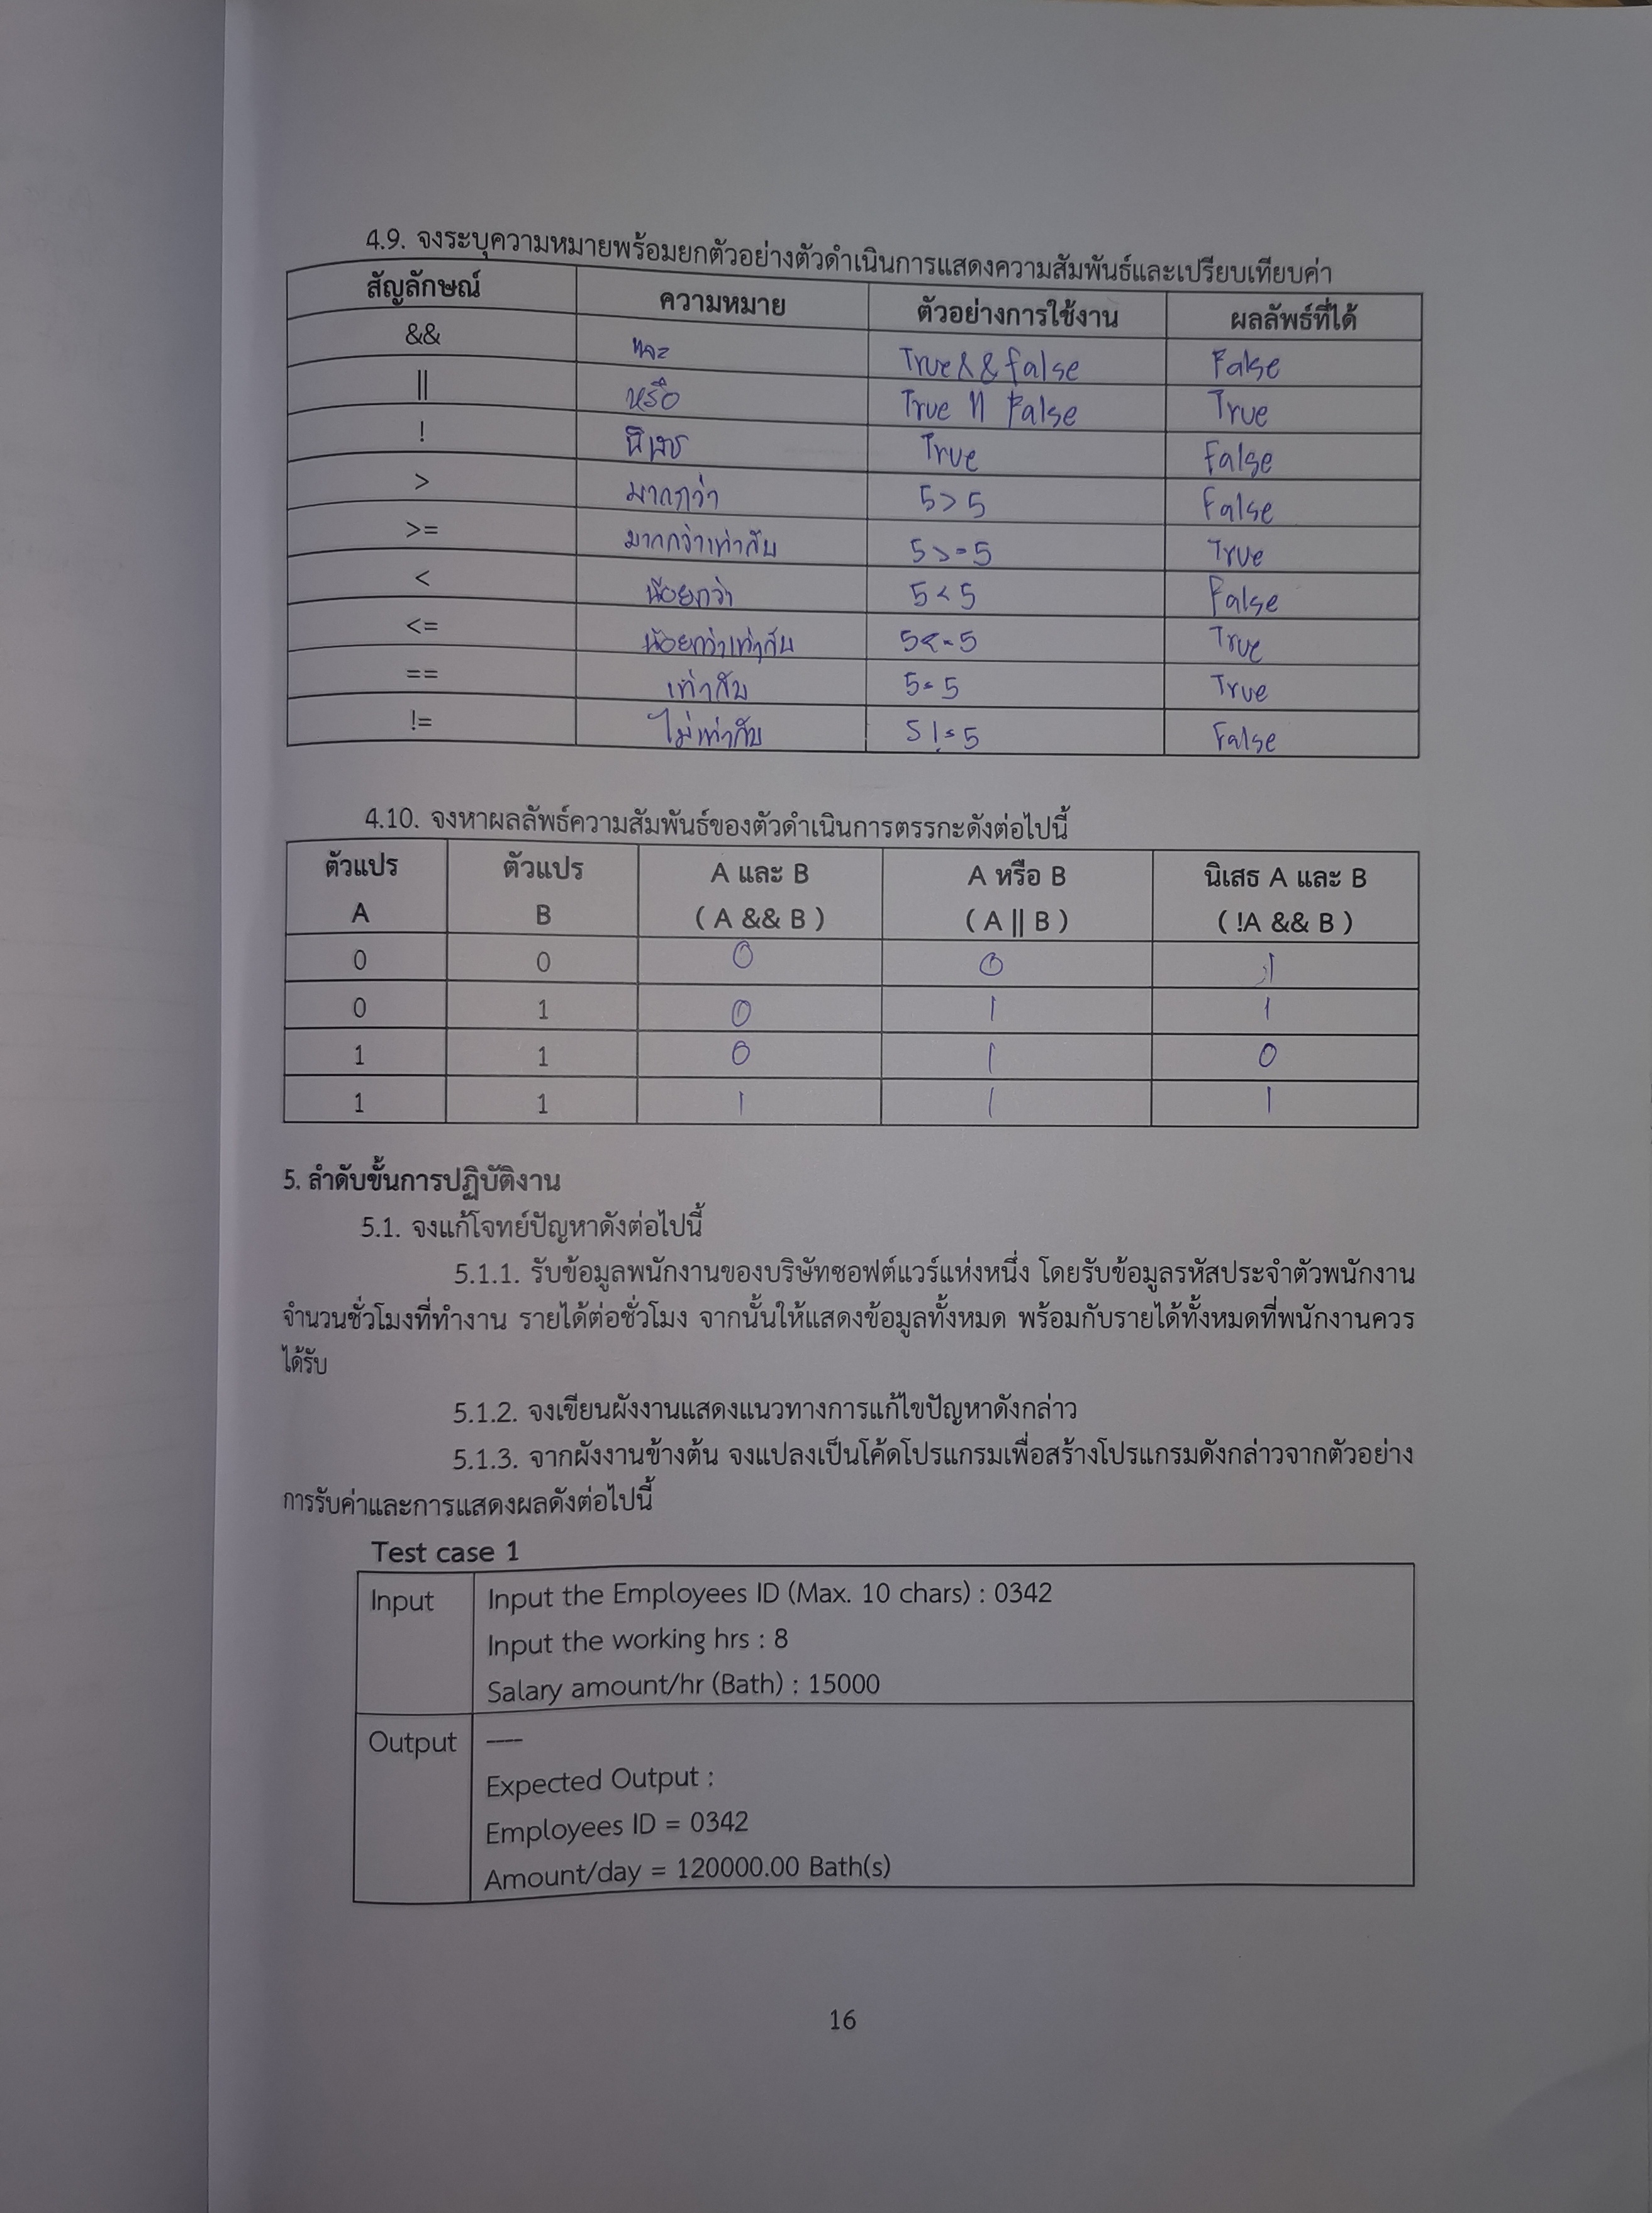 4.9. จงระบุความหมายพร้อมยกตัวอย่างตัวดำเนินการแสดงความสัมพันธ์และเปรียบเทียบค่า
สัญลักษณ์ ความหมาย ตัวอย่างการใช้งาน ผลลัพธ์ที่ได้
&& และ True&&false False
|| หรือ True || False True
! นิเสธ True False
> มากกว่า 5>5 False
>= มากกว่าเท่ากับ 5>=5 True
< น้อยกว่า 5<5 False
<= น้อยกว่าเท่ากับ 5<=5 True
== เท่ากับ 5=5 True
!= ไม่เท่ากับ 5!=5 False
4.10. จงหาผลลัพธ์ความสัมพันธ์ของตัวดำเนินการตรรกะดังต่อไปนี้
ตัวแปร ตัวแปร A และ B A หรือ B นิเสธ A และ B
A B ( A && B ) ( A || B ) ( !A && B )
0 0 0 0 1
0 1 0 1 1
1 1 0 1 0
1 1 1 1 1
5. ลำดับขั้นการปฏิบัติงาน
5.1. จงแก้โจทย์ปัญหาดังต่อไปนี้
5.1.1. รับข้อมูลพนักงานของบริษัทซอฟต์แวร์แห่งหนึ่ง โดยรับข้อมูลรหัสประจำตัวพนักงาน
จำนวนชั่วโมงที่ทำงาน รายได้ต่อชั่วโมง จากนั้นให้แสดงข้อมูลทั้งหมด พร้อมกับรายได้ทั้งหมดที่พนักงานควร
ได้รับ
5.1.2. จงเขียนผังงานแสดงแนวทางการแก้ไขปัญหาดังกล่าว
5.1.3. จากผังงานข้างต้น จงแปลงเป็นโค้ดโปรแกรมเพื่อสร้างโปรแกรมดังกล่าวจากตัวอย่าง
การรับค่าและการแสดงผลดังต่อไปนี้
Test case 1
Input Input the Employees ID (Max. 10 chars) : 0342
Input the working hrs : 8
Salary amount/hr (Bath) : 15000
Output ----
Expected Output :
Employees ID = 0342
Amount/day = 120000.00 Bath(s)
16